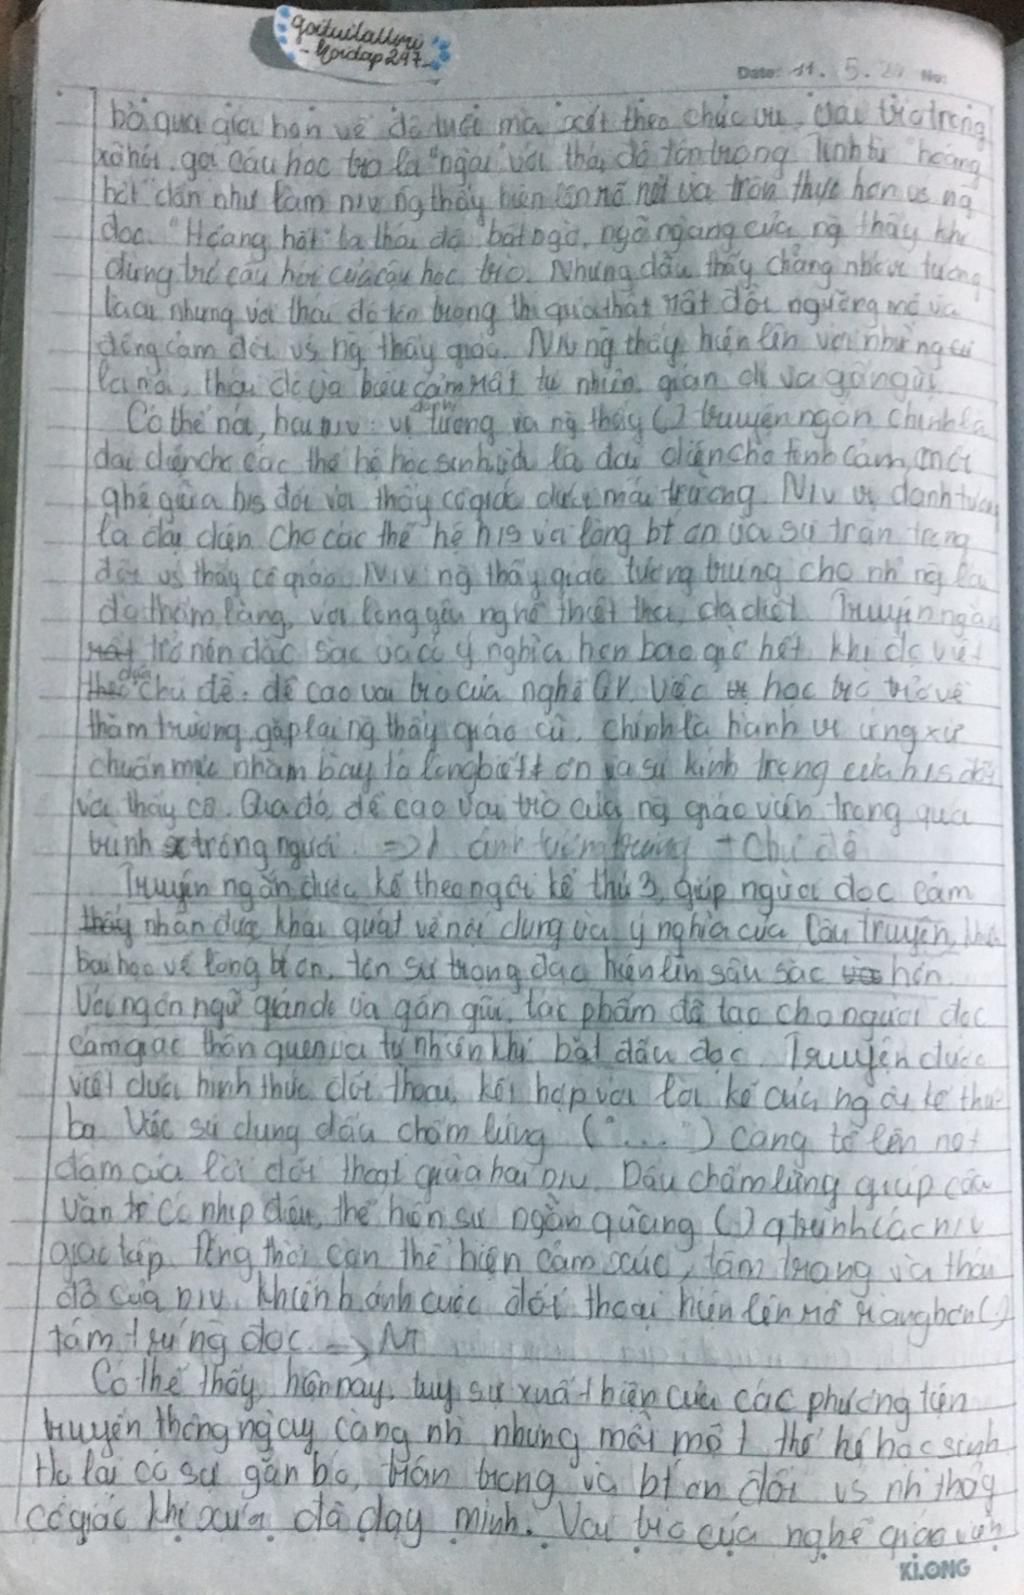 goituilallyri
-Hoidap247-
Date: 11. 5. 24 No:
bỏ qua giới hạn về độ tuổi mà xét theo chức vụ, vai trò trong
xã hội, gọi cậu học trò là "ngài" với thái độ tôn trọng. Tính từ "hoảng
hốt" dần như làm nv ng thầy hiện lên rõ nét và trân thực hơn vs ng
đọc. "Hoảng hốt" là thái độ bất ngờ, ngỡ ngàng của ng thầy khi
đứng trc câu hỏi của cậu học trò. Nhưng dẫu thầy chẳng nhớ vị tướng
là ai nhưng với thái độ tôn trọng thì quả thật rất đỗi ngưỡng mộ và
đồng cảm đối vs ng thầy giáo. Nv ng thầy hiện lên với những cử
là nó, thái độ và biểu cảm rất tự nhiên, giản dị và gần gũi
Có thể nói, hai nv: vị tướng và ng thầy (.) truyện ngắn chính là
đại diện cho các thế hệ học sinh, là đại diện cho tình cảm, mối
ghệ giữa h/s đối với thầy cô giáo dưới mái trường. Nv vị danh tướng
là đại diện cho các thế hệ h/s với lòng bt ơn và sự trân trọng
đối vs thầy cô giáo. Nv ng thầy giáo tượng trưng cho nh ng lái
đò thầm lặng, với lòng yêu nghề thiết tha, da diết. Truyện ngắn
trở nên đặc sắc và có ý nghĩa hơn bao giờ hết khi đc viết
theo chủ đề: đề cao vai trò của nghề GV. Việc học trò trở về
thăm trường, gặp lại ng thầy giáo cũ, chính là hành vi ứng xử
chuẩn mực nhằm bày tỏ lòng biết ơn và sự kính trọng của h/s đối
với thầy cô. Qua đó, đề cao vai trò của ng giáo viên trong quá
trình trồng người. => cảnh + Chủ đề
Truyện ngắn được kể theo ngôi kể thứ 3, giúp người đọc cảm
nhận được khái quát về nội dung và ý nghĩa của câu truyện, khiến
bài học về lòng bt ơn, tôn sư trọng đạo hiện lên sâu sắc hơn.
Với ngôn ngữ giản dị và gần gũi, tác phẩm đã tạo cho người đọc
cảm giác thân quen và tự nhiên khi bắt đầu đọc. Truyện được
viết dưới hình thức đối thoại, kết hợp với lời kể của ng ôi kể thứ
ba. Việc sử dụng dấu chấm lửng ("...") càng tô lên nét
đậm của lời đối thoại giữa hai nv. Dấu chấm lửng giúp câu
văn trở có nhịp điệu, thể hiện sự ngắn quãng (.) qtrình các nv
giao tiếp. Đồng thời còn thể hiện cảm xúc, tâm trạng và thái
độ của nv, khiến h ảnh cuộc đối thoại hiện lên rõ ràng hơn (.)
tâm trí ng đọc. => NT
Có thể thấy, hiện nay, tuy sự xuất hiện của các phương tiện
truyền thông ngày càng nh nhưng mỗi một thế hệ học sinh
Họ lại có sự gắn bó, trân trọng và bt ơn đối vs nh thầy
cô giáo khi xưa đã dạy mình. Vai trò của nghề giáo viên
KLONG